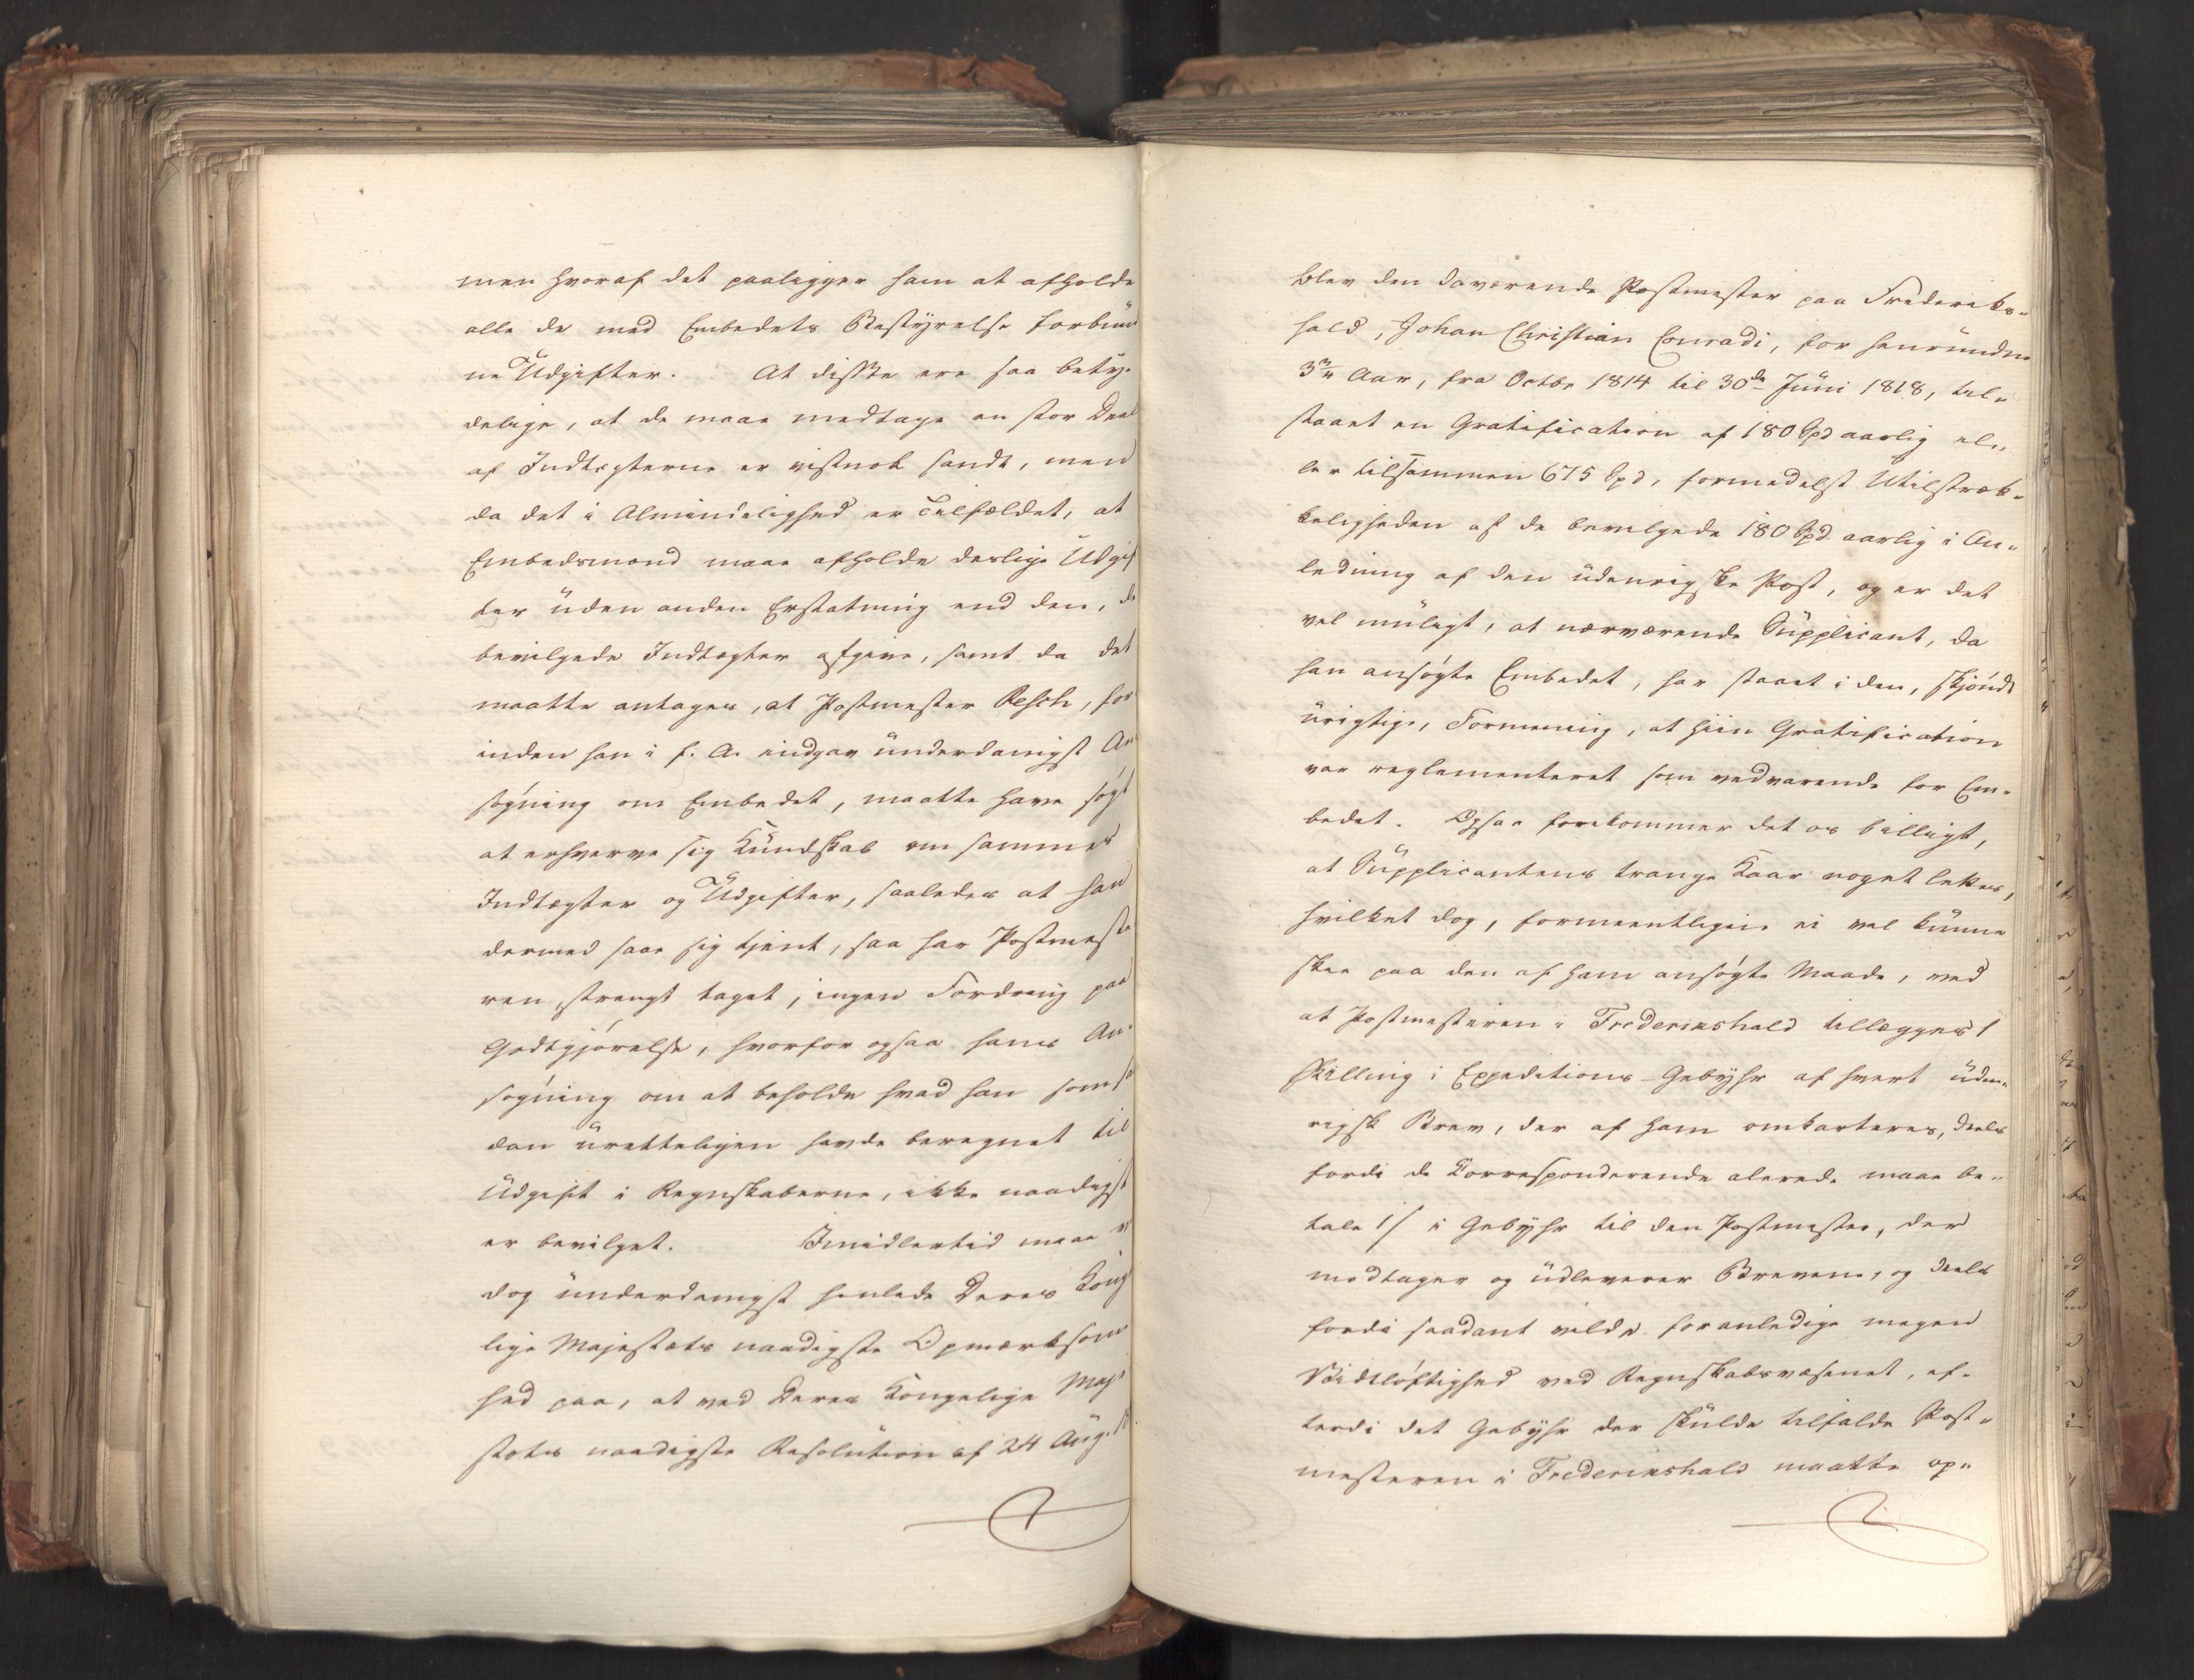 men hvoraf det paaligger ham at afholde
alle de med Embedets Bestyrelse forbun
ne Udgifter. At disse ere saa bety-
delige, at de maae medtage en stor Deel
af Indtægterne er vistnok sandt, men
da det i Almindelighed er Tilfældet, at
Embedsmænd maae afholde deslige Udgif
ter uden anden Erstatning end den, de
bevilgede Indtægter afgive, samt da det
maatte antages, at Postmester Resch, for
inden han i f. A. indgav underdanigst An
søgning om Embedet, maatte have søgt
at erhverve sig Kundskab om sammes
Indtægter og Udgifter, saaledes at han
dermed saae sig tjent, saa har Postmeste
ren, strengt taget, ingen Fordring paa
Godtgjørelse, hvorfor ogsaa hans An-
søgning om at beholde hvad han som sa
dan uretteligen havde beregnet til
Udgift i Regnskaberne, ikke naadigst
er bevilget. Imidlertid maae vi
dog underdanigst henlede Deres Konge
lige Majestæts naadigste Opmærksom
hed paa, at ved Deres Kongelige Maje
stæts naadigste Resolution af 24 Aug.
blev den daværende Postmester paa Frederiks-
hald, Johan Christian Conradi, for henrundne
3 3/4 Aar, fra Octbr 1814 til 30de Juni 1818, til-
staaet en Gratification af 180 Spd aarlig el-
ler tilsammen 675 Spd, formedelst Utilstræk-
keligheden af de bevilgede 180 Spd. aarlig i An-
ledning af den udenrigske Post, og er det
vel muligt, at nærværende Supplicant, da
han ansøgte Embedet, har staaet i den, skjøndt
urigtige, Formening, at hiin Gratification
var reglementeret som vedvarende for Em-
bedet. Ogsaa forekommer det os billigt,
at Supplicantens trange Kaar noget lettes,
hvilket dog, formeentligen ei vel kunne
skee paa den af ham ansøgte Maade, ved
at Postmesteren i Frederikshald tillægges 1
Skilling i Expeditions-Gebyhr af hvert uden-
rigsk Brev, der af ham omkarteres, deels
fordi de Korresponderende alerede maae be-
tale 1 s i Gebyhr til den Postmester, der
modtager og udleverer Brevene, og deels
fordi saadant vilde foranledige megen
Vidtløftighed ved Regnskabsvæsenet, ef-
terdi det Gebyhr der skulde tilfalde Post-
mesteren i Frederikshald maatte op-